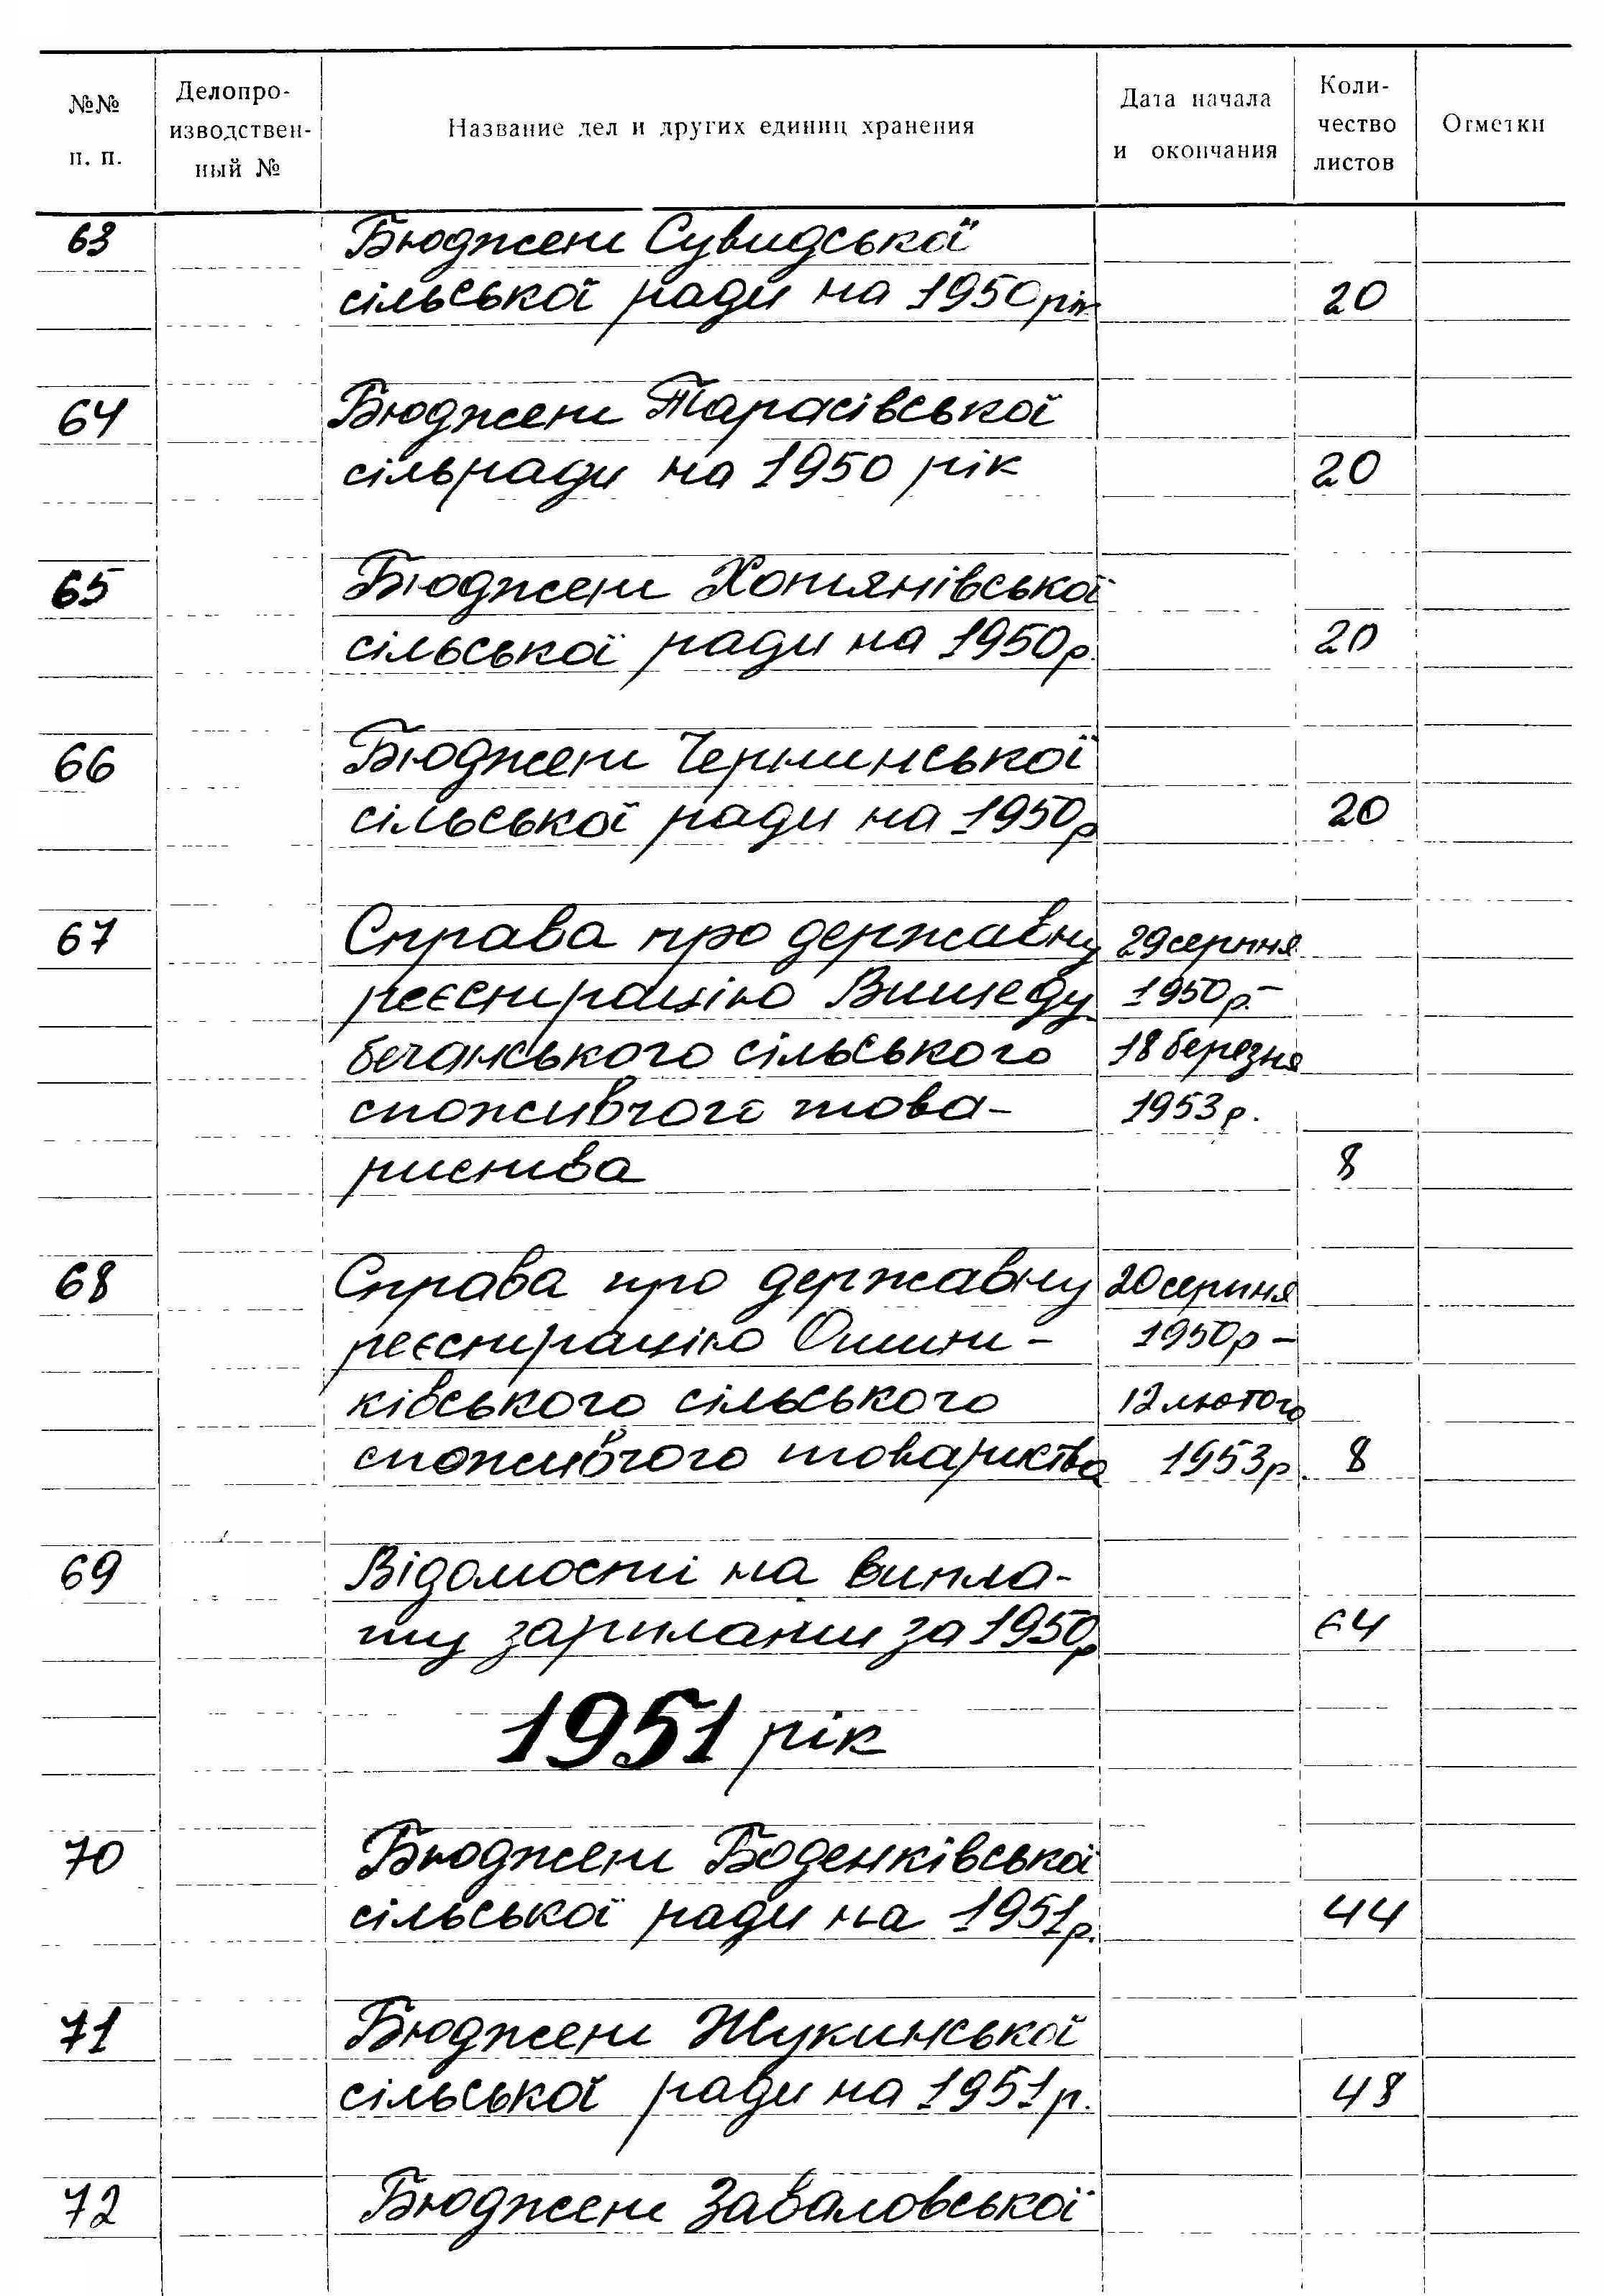 №№ п. п.
Делопро-
изводствен-
ный №
Название дел и других единиц хранения
Дата начала
и окончания
Коли-
чество
листов
Отметки
63 Бюджет Сувидської
сільської ради на 1950 рік 20
64 Бюджет Тарасівської
сільради на 1950 рік 20
65 Бюджет Хотянівської
сільської ради на 1950р. 20
66 Бюджет Чернинської
сільської ради на 1950р 20
67 Справа про державну 29 серпня
реєстрацію Вишеду 1950р.-
бечанського сільського 18 березня
споживчого това- 1953р.
риства 8
68 Справа про державну 20 серпня
реєстрацію Ошит- 1950р -
ківського сільського 12 лютого
споживчого товариства 1953р. 8
69 Відомості на випла-
ту зарплати за 1950р 64
1951 рік
70 Бюджет Боденківської
сільської ради на 1951р. 44
71 Бюджет Жукинської
сільської ради на 1951р. 48
72 Бюджет Заваловської